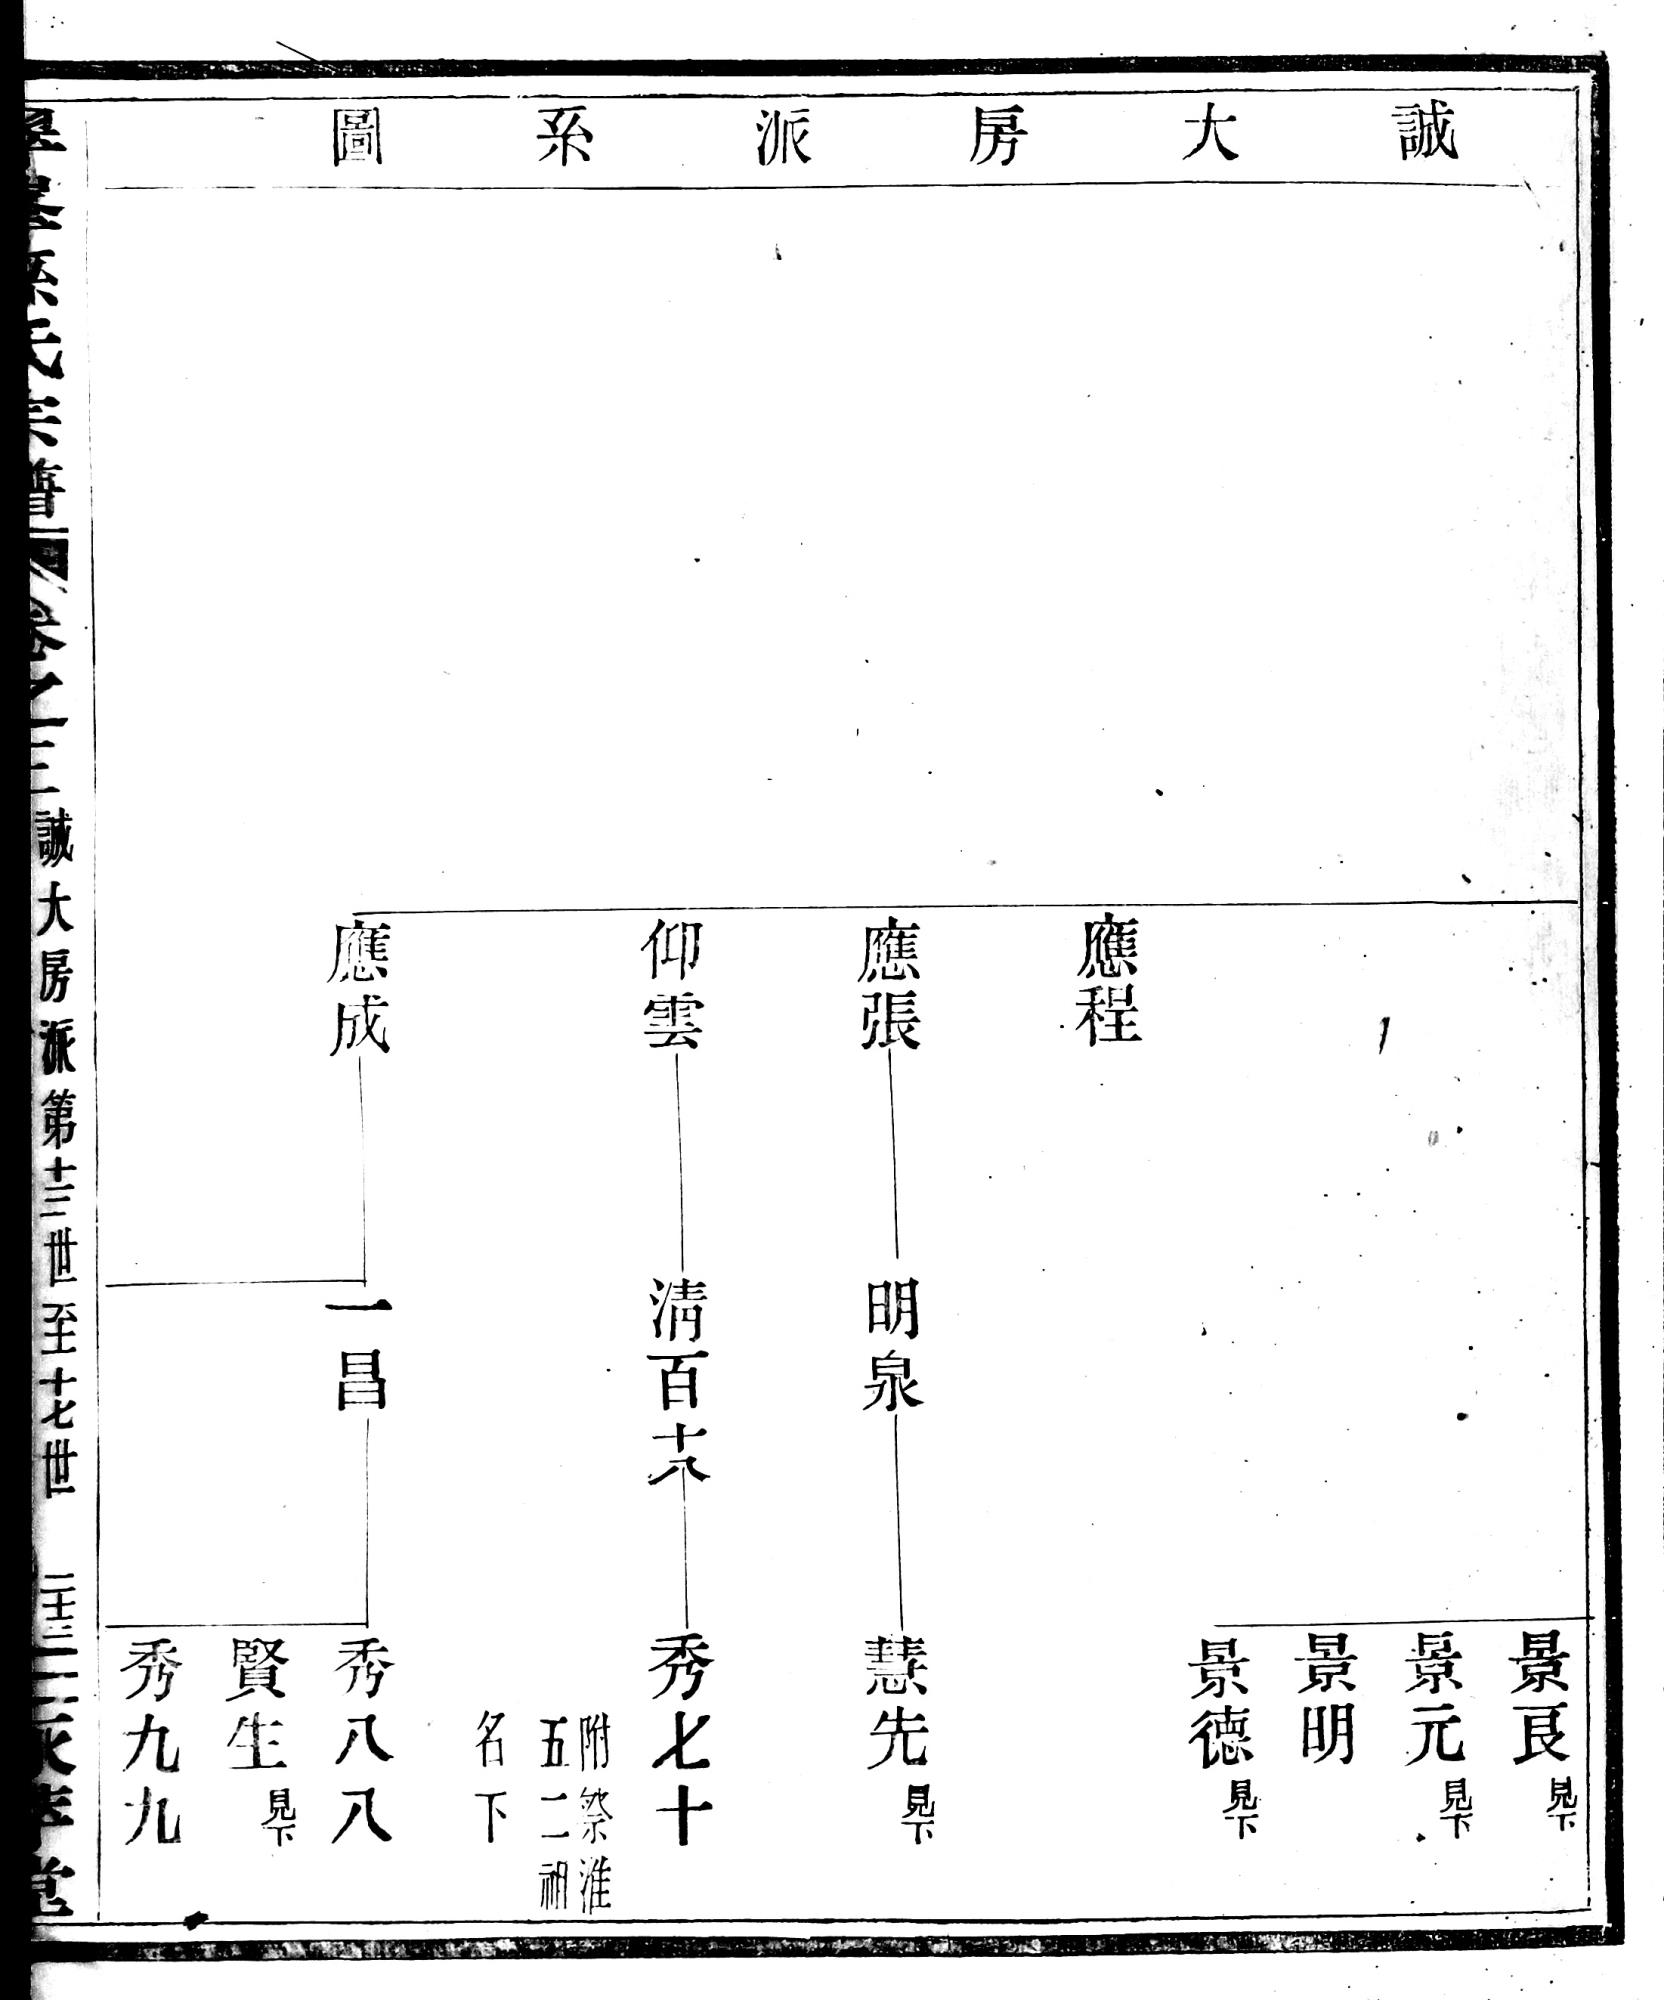 誠大房派系圖
應程
應張
仰雲
應成
明泉
清百十八
一昌
景良見下
景元見下
景明
景德見下
慧先見下
秀七十
附祭淮
五二祖
名下
秀八八
賢生見下
秀九九
孫氏宗譜
卷之三
誠大房派第十三世至十七世
二十三
堂